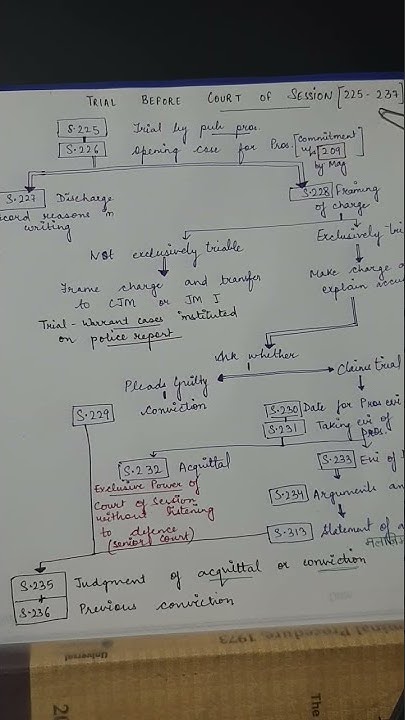 TRIAL BEFORE COURT OF SESSION [225 - 237]
S.225 Trial by pub pros.
S.226 Opening case for Pros. [Commitment
u/s 209
by Mag]
S.227 Discharge
record reasons in
writing
S.228 Framing
of charge
Not exclusively triable
Exclusively tri
Frame charge and transfer
to CJM or JM I
Trial - Warrant cases instituted
on police report
Make charge a
explain accu
Ask whether
Pleads guilty
Claims trial
S.229 Conviction
S.230 Date for Pros evi
S.231 Taking evi of
Pros.
S.232 Acquittal
Exclusive Power of
Court of Session
without listening
to defence
(senior court)
S.233 Evi of
S.234 Arguments an
S.313 Statement of a
S.235 Judgment of acquittal or conviction
+
S.236 Previous conviction
minal Procedure, 1973
Universal
The